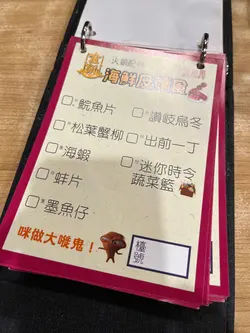 火鍋配
海鮮及
鯇魚片
讚岐烏冬
松葉蟹柳
出前一丁
海蝦
迷你時令
蔬菜籃
蚌片
墨魚仔
咪做大嘥鬼！
檯
號